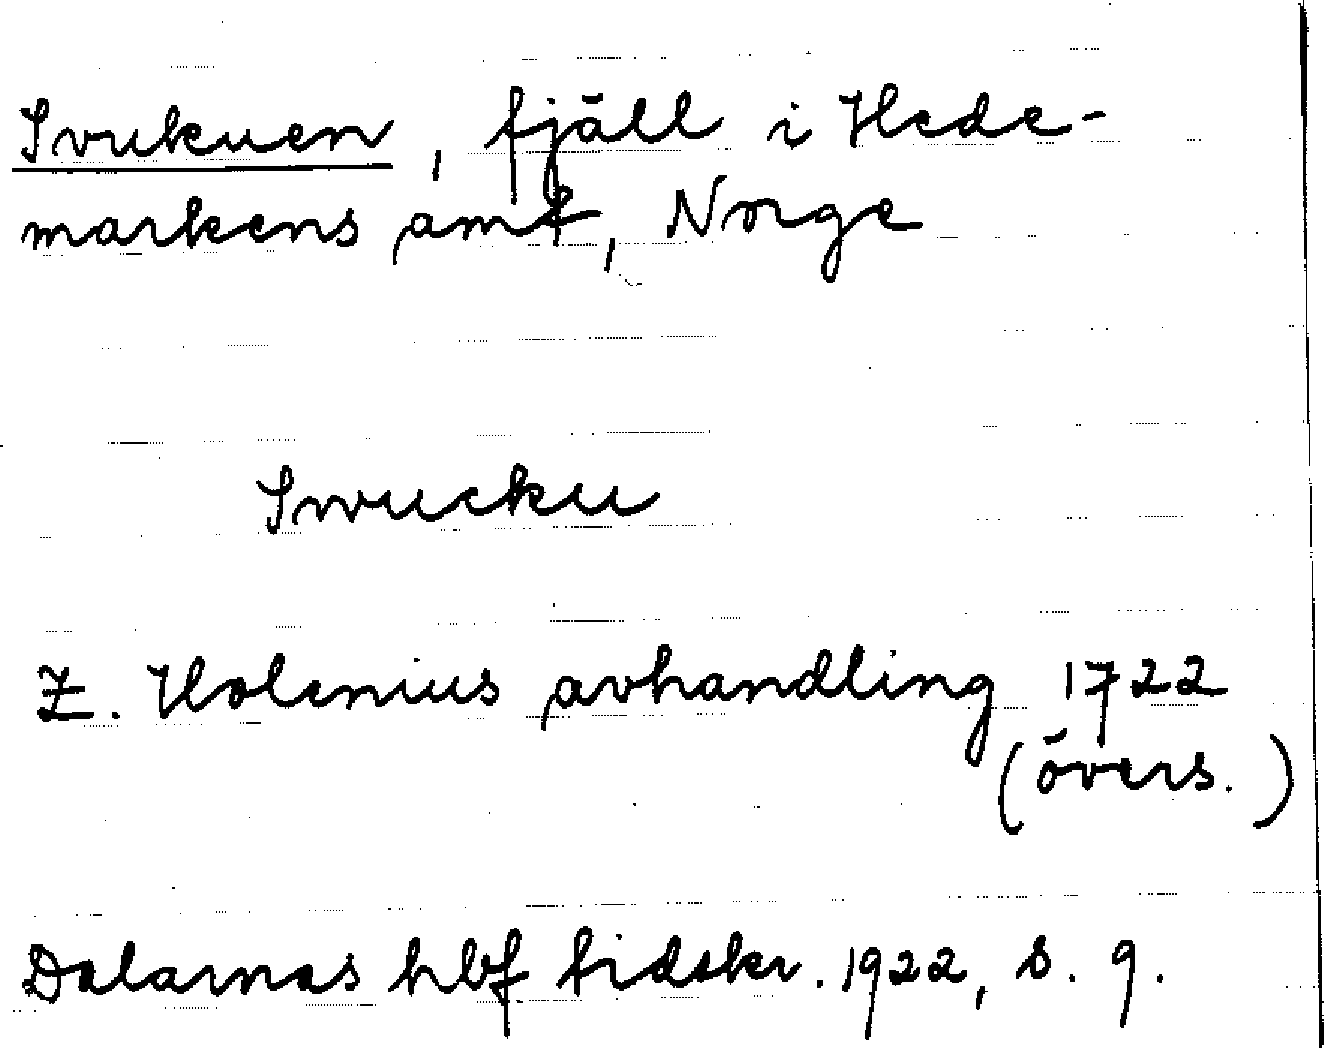 Svukuen, fjäll i Hede-
markens amt, Norge
Swucku
Z. Holenius avhandling 1722
(övers.)
Dalarnas hbf tidskr. 1922, s. 9.